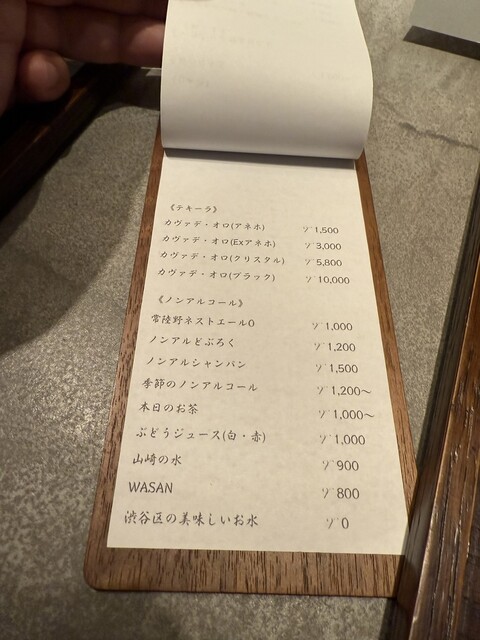 《テキーラ》
カヴァデ・オロ(アネホ) ゾ1,500
カヴァデ・オロ(Exアネホ) ゾ3,000
カヴァデ・オロ(クリスタル) ゾ5,800
カヴァデ・オロ(ブラック) ゾ10,000
《ノンアルコール》
常陸野ネストエール0 ゾ1,000
ノンアルどぶろく ゾ1,200
ノンアルシャンパン ゾ1,500
季節のノンアルコール ゾ1,200〜
本日のお茶 ゾ1,000〜
ぶどうジュース(白・赤) ゾ1,000
山崎の水 ゾ900
WASAN ゾ800
渋谷区の美味しいお水 ゾ0